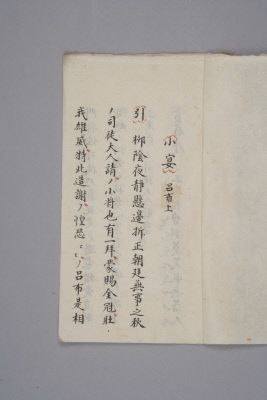 小宴 呂布上
引 柳陰夜靜懸邊拆正朝廷無事之秋
ノ司徒大人請ノ小將也有一拜蒙賜金冠壯
我雄威特此造謝ノ惶恐ミミノ呂布是相